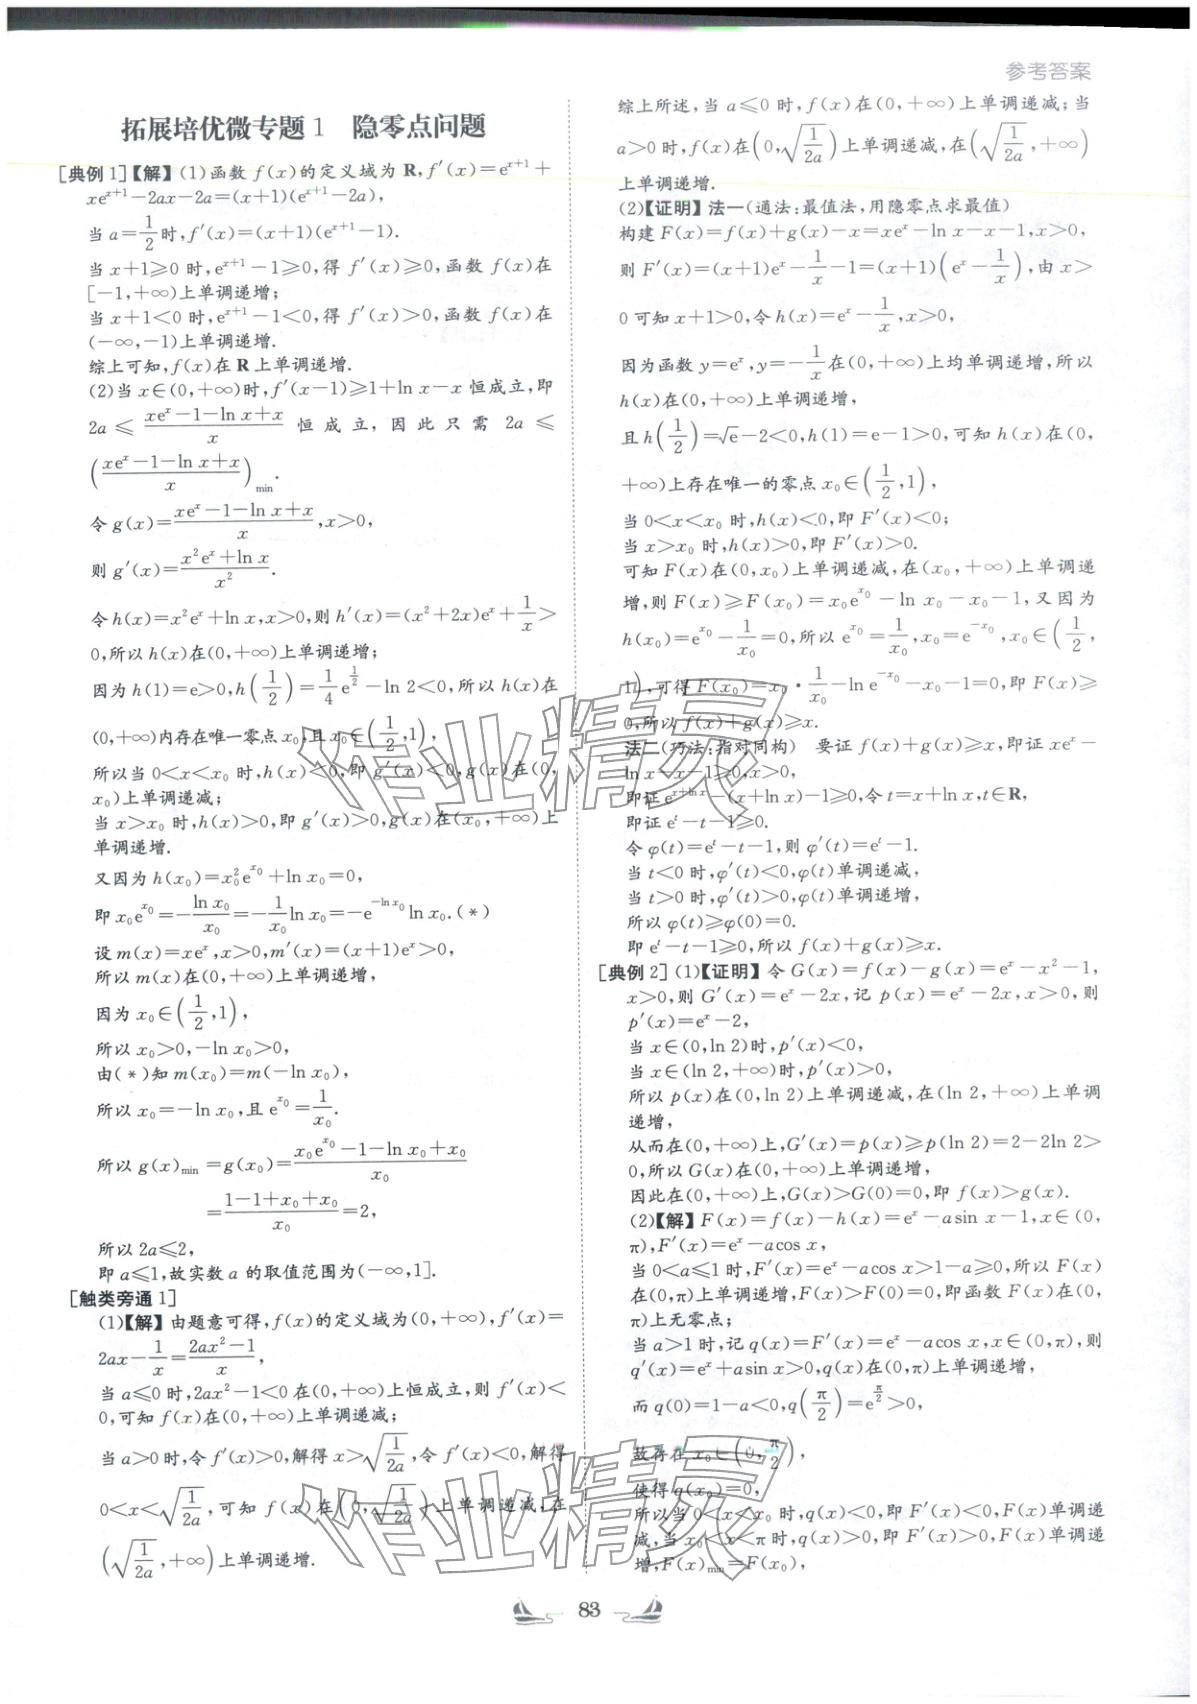 参考答案
拓展培优微专题1　隐零点问题
[典例1]【解】(1)函数 f(x)的定义域为 R,f′(x)=e^{x+1}+
xe^{x+1}-2ax-2a=(x+1)(e^{x+1}-2a),
当 a=1/2 时,f′(x)=(x+1)(e^{x+1}-1).
当 x+1≥0 时,e^{x+1}-1≥0,得 f′(x)≥0,函数 f(x)在
[-1,+∞)上单调递增;
当 x+1<0 时,e^{x+1}-1<0,得 f′(x)>0,函数 f(x)在
(-∞,-1)上单调递增.
综上可知,f(x)在 R 上单调递增.
(2)当 x∈(0,+∞)时,f′(x-1)≥1+ln x-x 恒成立,即
2a ≤ (xe^x-1-ln x+x)/x 恒成立,因此只需 2a ≤
((xe^x-1-ln x+x)/x)_{min}.
令 g(x)=(xe^x-1-ln x+x)/x,x>0,
则 g′(x)=(x²e^x+ln x)/x².
令 h(x)=x²e^x+ln x,x>0,则 h′(x)=(x²+2x)e^x+1/x>
0,所以 h(x)在(0,+∞)上单调递增;
因为 h(1)=e>0,h(1/2)=1/4 e^{1/2}-ln 2<0,所以 h(x)在
(0,+∞)内存在唯一零点 x₀,且 x₀∈(1/2,1),
所以当 0<x<x₀ 时,h(x)<0,即 g′(x)<0,g(x)在(0,
x₀)上单调递减;
当 x>x₀ 时,h(x)>0,即 g′(x)>0,g(x)在(x₀,+∞)上
单调递增.
又因为 h(x₀)=x₀²e^{x₀}+ln x₀=0,
即 x₀e^{x₀}=-ln x₀/x₀=-1/x₀ ln x₀=-e^{-ln x₀}ln x₀.(*)
设 m(x)=xe^x,x>0,m′(x)=(x+1)e^x>0,
所以 m(x)在(0,+∞)上单调递增,
因为 x₀∈(1/2,1),
所以 x₀>0,-ln x₀>0,
由(*)知 m(x₀)=m(-ln x₀),
所以 x₀=-ln x₀,且 e^{x₀}=1/x₀.
所以 g(x)_{min}=g(x₀)=(x₀e^{x₀}-1-ln x₀+x₀)/x₀
=(1-1+x₀+x₀)/x₀=2,
所以 2a≤2,
即 a≤1,故实数 a 的取值范围为(-∞,1].
[触类旁通1]
(1)【解】由题意可得,f(x)的定义域为(0,+∞),f′(x)=
2ax-1/x=(2ax²-1)/x,
当 a≤0 时,2ax²-1<0 在(0,+∞)上恒成立,则 f′(x)<
0,可知 f(x)在(0,+∞)上单调递减;
当 a>0 时,令 f′(x)>0,解得 x>√(1/2a),令 f′(x)<0,解得
0<x<√(1/2a),可知 f(x)在(0,√(1/2a))上单调递减,在
(√(1/2a),+∞)上单调递增.
综上所述,当 a≤0 时,f(x)在(0,+∞)上单调递减;当
a>0 时,f(x)在(0,√(1/2a))上单调递减,在(√(1/2a),+∞)
上单调递增.
(2)【证明】法一(通法:最值法,用隐零点求最值)
构建 F(x)=f(x)+g(x)-x=xe^x-ln x-x-1,x>0,
则 F′(x)=(x+1)e^x-1/x-1=(x+1)(e^x-1/x),由 x>
0 可知 x+1>0,令 h(x)=e^x-1/x,x>0,
因为函数 y=e^x,y=-1/x 在(0,+∞)上均单调递增,所以
h(x)在(0,+∞)上单调递增,
且 h(1/2)=√e-2<0,h(1)=e-1>0,可知 h(x)在(0,
+∞)上存在唯一的零点 x₀∈(1/2,1),
当 0<x<x₀ 时,h(x)<0,即 F′(x)<0;
当 x>x₀ 时,h(x)>0,即 F′(x)>0.
可知 F(x)在(0,x₀)上单调递减,在(x₀,+∞)上单调递
增,则 F(x)≥F(x₀)=x₀e^{x₀}-ln x₀-x₀-1,又因为
h(x₀)=e^{x₀}-1/x₀=0,所以 e^{x₀}=1/x₀,x₀=e^{-x₀},x₀∈(1/2,
1),可得 F(x₀)=x₀·1/x₀-ln e^{-x₀}-x₀-1=0,即 F(x)≥
0,所以 f(x)+g(x)≥x.
法二(巧法:指对同构)　要证 f(x)+g(x)≥x,即证 xe^x-
ln x-x-1≥0,x>0,
即证 e^{x+ln x}-(x+ln x)-1≥0,令 t=x+ln x,t∈R,
即证 e^t-t-1≥0.
令 φ(t)=e^t-t-1,则 φ′(t)=e^t-1.
当 t<0 时,φ′(t)<0,φ(t)单调递减,
当 t>0 时,φ′(t)>0,φ(t)单调递增,
所以 φ(t)≥φ(0)=0.
即 e^t-t-1≥0,所以 f(x)+g(x)≥x.
[典例2](1)【证明】令 G(x)=f(x)-g(x)=e^x-x²-1,
x>0,则 G′(x)=e^x-2x,记 p(x)=e^x-2x,x>0,则
p′(x)=e^x-2,
当 x∈(0,ln 2)时,p′(x)<0,
当 x∈(ln 2,+∞)时,p′(x)>0,
所以 p(x)在(0,ln 2)上单调递减,在(ln 2,+∞)上单调
递增,
从而在(0,+∞)上,G′(x)=p(x)≥p(ln 2)=2-2ln 2>
0,所以 G(x)在(0,+∞)上单调递增,
因此在(0,+∞)上,G(x)>G(0)=0,即 f(x)>g(x).
(2)【解】F(x)=f(x)-h(x)=e^x-asin x-1,x∈(0,
π),F′(x)=e^x-acos x,
当 0<a≤1 时,F′(x)=e^x-acos x>1-a≥0,所以 F(x)
在(0,π)上单调递增,F(x)>F(0)=0,即函数 F(x)在(0,
π)上无零点;
当 a>1 时,记 q(x)=F′(x)=e^x-acos x,x∈(0,π),则
q′(x)=e^x+asin x>0,q(x)在(0,π)上单调递增,
而 q(0)=1-a<0,q(π/2)=e^{π/2}>0,
故存在 x₀∈(0,π/2),
使得 q(x₀)=0,
所以当 0<x<x₀ 时,q(x)<0,即 F′(x)<0,F(x)单调递
减,当 x₀<x<π 时,q(x)>0,即 F′(x)>0,F(x)单调递
增,F(x)_{min}=F(x₀),
83
作业精灵
作业精灵